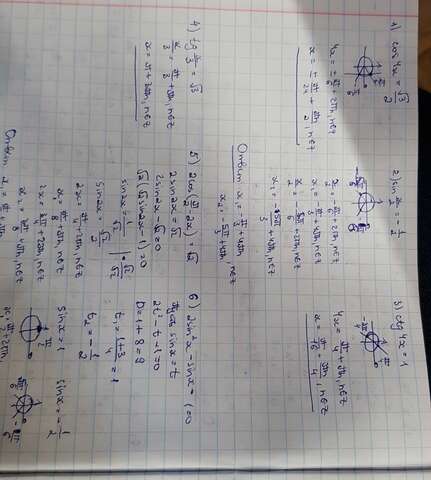 1) cos 4x = √3/2
4x = ± π/6 + 2πn, n∈z
x = ± π/24 + πn/2, n∈z
2) sin x/2 = -1/2
x/2 = -π/6 + 2πn, n∈z
x₁ = -π/3 + 4πn, n∈z
x/2 = -5π/6 + 2πn, n∈z
x₂ = -5π/3 + 4πn, n∈z
Ответ: x₁ = -π/3 + 4πn
x₂ = -5π/3 + 4πn, n∈z
3) ctg 4x = 1
4x = π/4 + πn, n∈z
x = π/16 + πn/4, n∈z
4) tg x/3 = √3
x/3 = π/3 + πn, n∈z
x = π + 3πn, n∈z
5) 2cos(π/2 - 2x) = √2
2 sin2x = √2
2sin2x - √2 = 0
√2(√2sin2x - 1) = 0
sin2x = 1/√2
sin2x = √2/2
2x = π/4 + 2πn, n∈z
x₁ = π/8 + πn, n∈z
6) 2sin²x - sinx - 1 = 0
sin x = t
2t² - t - 1 = 0
D = 1 + 8 = 9
t₁ = 1+3/4 = 1
t₂ = -1/2
sinx = 1
sinx = -1/2